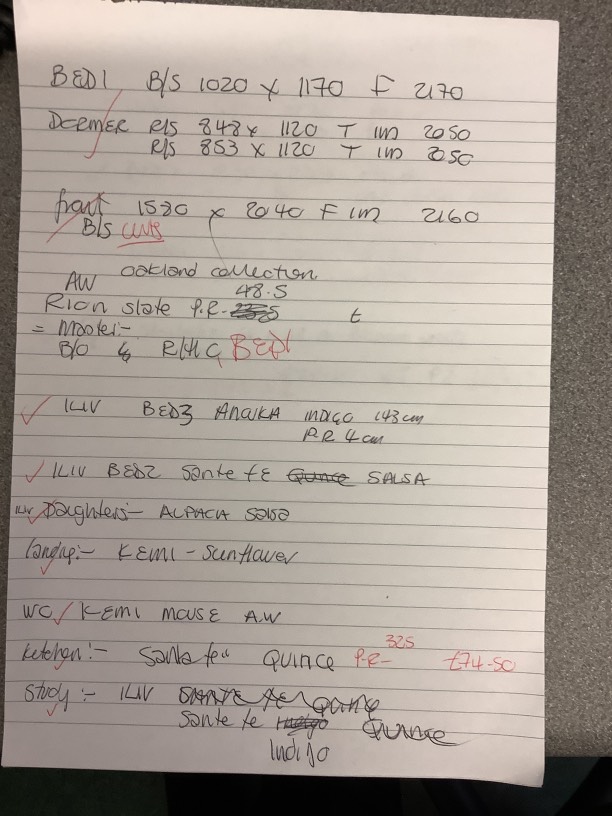 BED1 B/S 1020 x 1170 F 2170
DORMER R/S 848 x 1120 T IM 2050
R/S 853 x 1120 T IM 2050
front 1520 x 2040 F IM 2160
B/S
Oakland collection
AW 48.5
Rion slate P.R-
= Master:-
B/O & R/H BED1
ILIV BED3 ANAIKA INDIGO 143cm
P.R 4cm
ILIV BED2 Sante fe Quince SALSA
ILIV Daughters:- ALPACA Salsa
Landing:- KEMI - Sunflower
WC KEMI MOUSE A.W
Ketchen:- Sante fe QUINCE P-R- 325 £74-50
Study:- ILIV
Sante fe Quince
Indigo